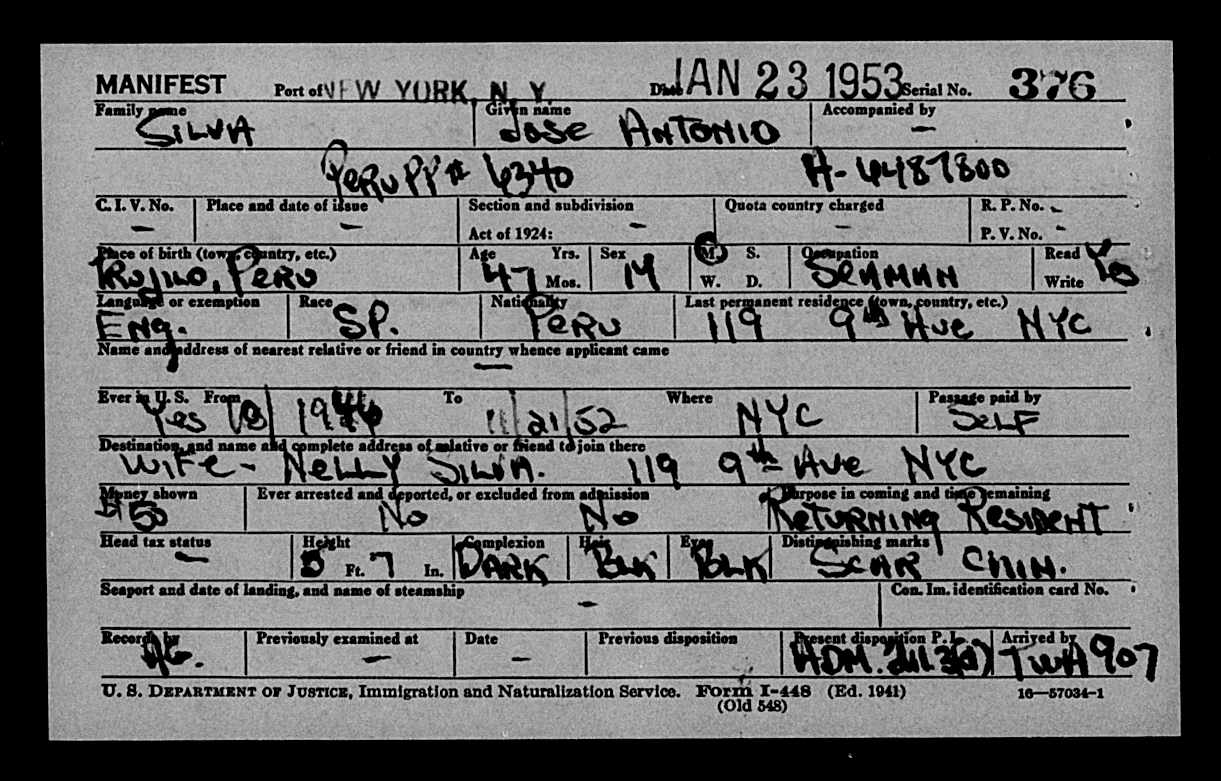 MANIFEST Port of NEW YORK, N. Y. Date JAN 23 1953 Serial No. 376
Family name Given name Accompanied by
SILVA JOSE ANTONIO —
PERU PP# 6340 A-6487800
C. I. V. No. Place and date of issue Section and subdivision Quota country charged R. P. No. -
— — Act of 1924: — — P. V. No. -
Place of birth (town, country, etc.) Age Yrs. Sex M. S. Occupation Read Yes
TRUJILLO, PERU 47 Mos. M W. D. SEAMAN Write
Language or exemption Race Nationality Last permanent residence (town, country, etc.)
ENG. SP. PERU 119 9th AVE NYC
Name and address of nearest relative or friend in country whence applicant came
—
Ever in U. S. From To Where Passage paid by
Yes 1946 11/21/52 NYC SELF
Destination, and name and complete address of relative or friend to join there
WIFE - NELLY SILVA. 119 9th AVE NYC
Money shown Ever arrested and deported, or excluded from admission Purpose in coming and time remaining
$50 No No RETURNING RESIDENT
Head tax status Height Complexion Hair Eyes Distinguishing marks
— 5 Ft. 7 In. DARK BLK BLK SCAR CHIN.
Seaport and date of landing, and name of steamship Con. Im. identification card No.
—
Records by Previously examined at Date Previous disposition Present disposition P. I. Arrived by
AG. — — ADM. 211.3(a) TWA 907
U. S. DEPARTMENT OF JUSTICE, Immigration and Naturalization Service. Form I-448 (Ed. 1941) 16—57034-1
(Old 548)